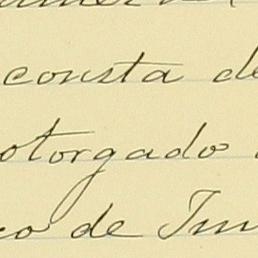 consta de
otorgado
co de Im